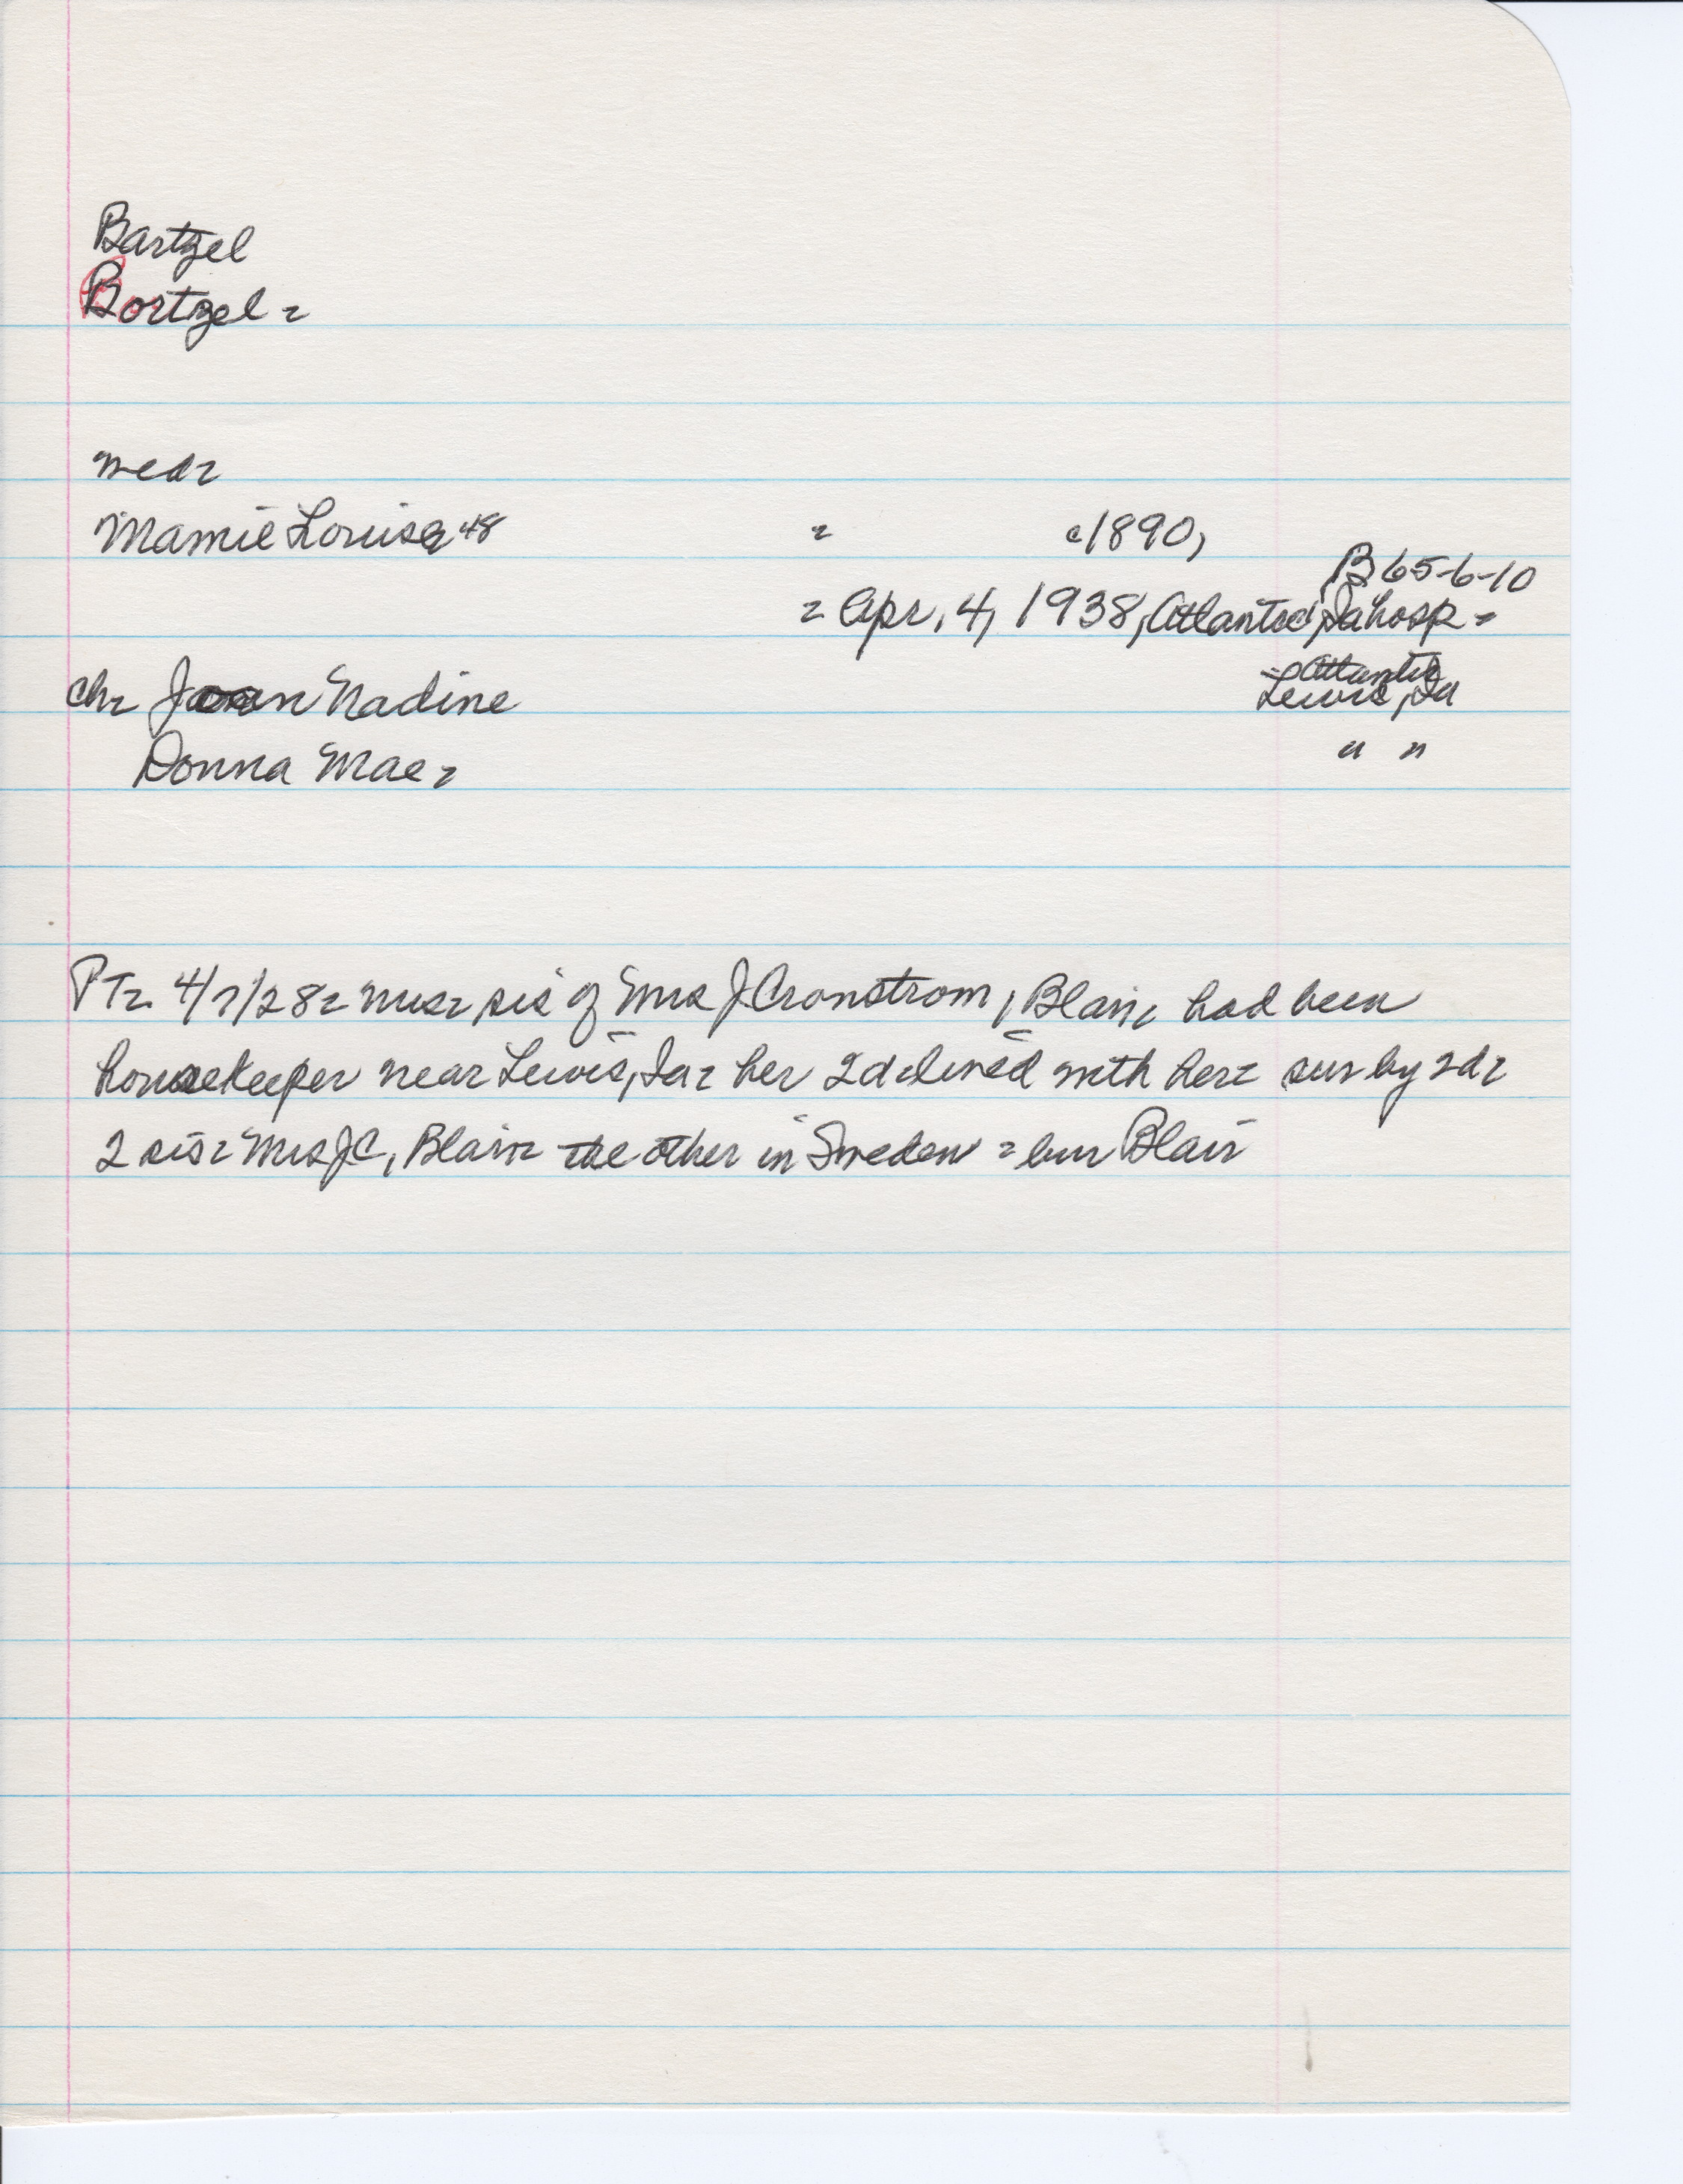 Bartzel
Bortzel =
med=
Mamie Louise 48 = c1890,
B 65-6-10
= Apr. 4, 1938, Atlantic, Ia hosp =
Atlantic
ch= Joan Nadine Lewis, Ia
Donna Mae= " "
PT= 4/7/28= sis of Mrs J Cronstrom, Blair, had been
housekeeper near Lewis, Ia= her 2d= lived with her= sur by 2d=
2 sis= Mrs JC, Blair= the other in Sweden = bur Blair